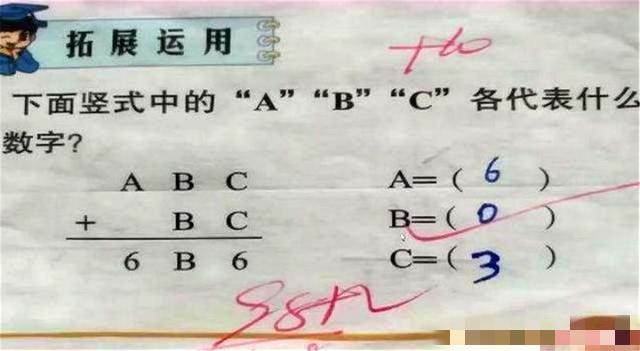 拓展运用
+10
下面竖式中的“A”“B”“C”各代表什么
数字?
A B C
+ B C
6 B 6
A=( 6 )
B=( 0 )
C=( 3 )
98+2